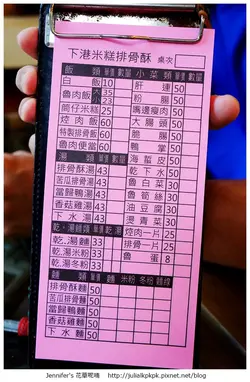 下港米糕排骨酥 桌次
飯 類 單價 數量 小菜類 單價 數量
白飯 10 肝連 50
魯肉飯 大 35 小 23 粉腸 50
筒仔米糕 25 嘴邊瘦肉 50
焢肉飯 60 大腸頭 50
特製排骨飯 60 鴨掌 50
魯肉便當 60 鴨賞 50
湯 類 單價 數量 海蜇皮 50
排骨酥湯 43 乾下水 50
苦瓜排骨湯 43 魯白菜 30
當歸鴨湯 43 魯筍絲 30
香菇雞湯 43 油豆腐 30
下水湯 43 燙青菜 30
乾.湯麵類 單價 乾 湯 焢肉一片 25
乾.湯麵 33 排骨一片 25
乾.湯米粉 33 魯蛋 8
乾.湯冬粉 33
麵 類 單價 麵 米粉 冬粉 麵線
排骨酥麵 50
苦瓜排骨麵 50
當歸鴨麵 50
香菇雞麵 50
下水麵 50
Jennifer's 花華呢喃 http://julialkpkpk.pixnet.net/blog